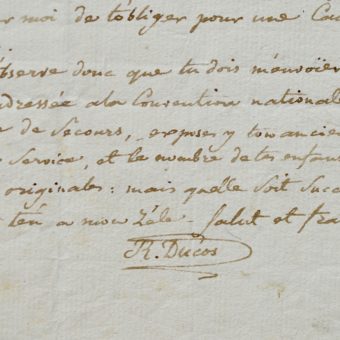 moi de t'obliger pour une
observe donc que tu dois m'envoier
adressée a la Convention nationale
de Secours, exposes y ton ancien
Service, et le nombre de tes enfans
originales: mais qu'elle soit succ
a mon zéle. Salut et fra
R. Ducos